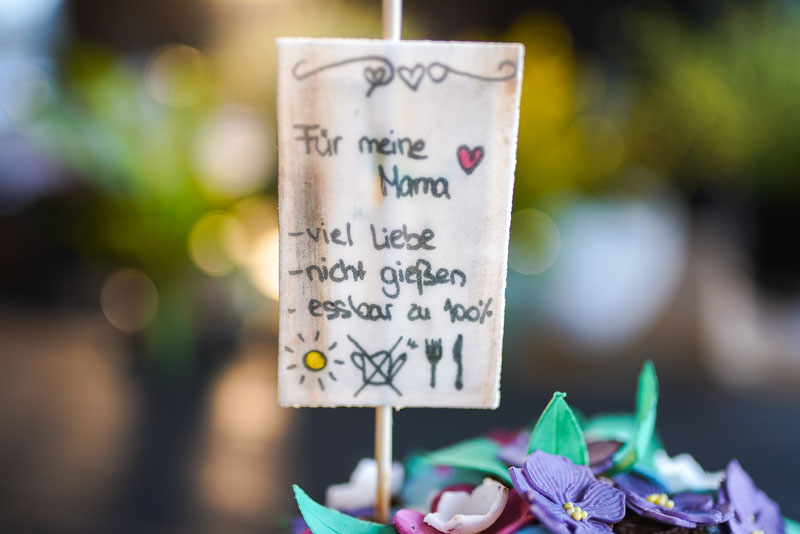 Für meine
Mama
-viel Liebe
-nicht gießen
- essbar zu 100%